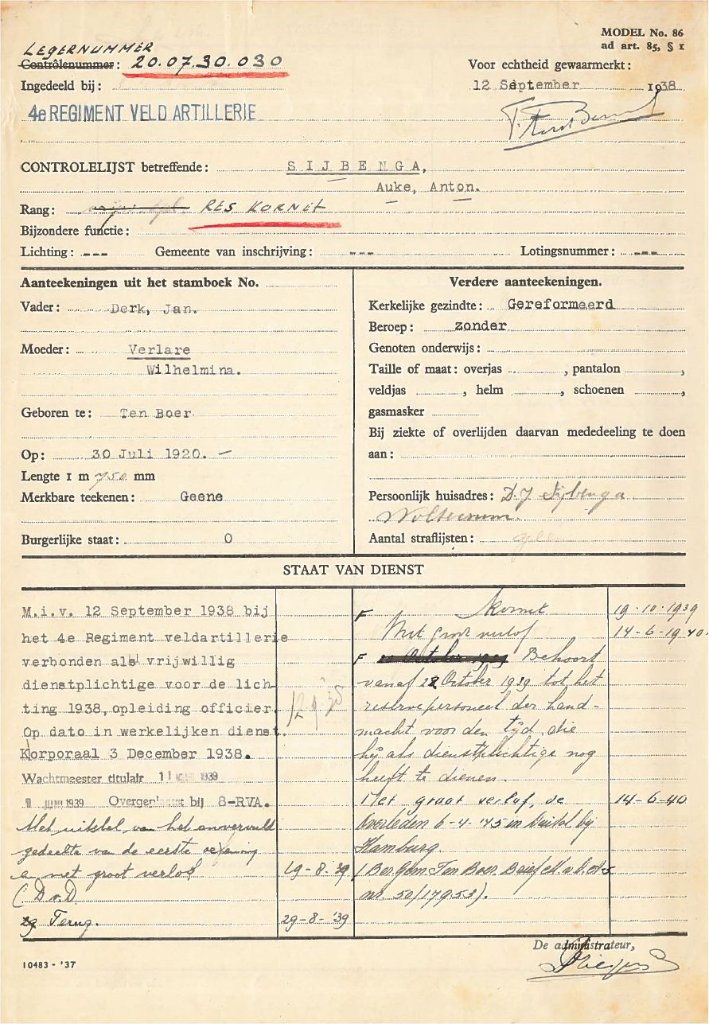 MODEL No. 86
ad art. 85, § 1
LEGERNUMMER
Contrôlenummer: 20.07.30.030
Voor echtheid gewaarmerkt:
Ingedeeld bij:
12 September 1938
4e REGIMENT VELD ARTILLERIE
CONTROLELIJST betreffende: SIJBENGA,
Auke, Anton.
Rang: RES KORNET
Bijzondere functie:
Lichting: --- Gemeente van inschrijving: --- Lotingsnummer: ---
Aanteekeningen uit het stamboek No.
Vader: Derk, Jan.
Moeder: Verlare
Wilhelmina.
Geboren te: Ten Boer
Op: 30 Juli 1920. -
Lengte 1 m 750 mm
Merkbare teekenen: Geene
Burgerlijke staat: O
Verdere aanteekeningen.
Kerkelijke gezindte: Gereformeerd
Beroep: zonder
Genoten onderwijs:
Taille of maat: overjas , pantalon ,
veldjas , helm , schoenen ,
gasmasker
Bij ziekte of overlijden daarvan mededeeling te doen
aan:
Persoonlijk huisadres: D.J Sijbenga
Aantal straflijsten:
STAAT VAN DIENST
M.i.v. 12 September 1938 bij
het 4e Regiment veldartillerie
verbonden als vrijwillig
dienstplichtige voor de lich
ting 1938, opleiding officier. 12.9.38
Op dato in werkelijken dienst.
Korporaal 3 December 1938.
Wachtmeester titulair 1939
1939 Overge bij 8-RVA.
Met uitstel van het onvervuld
gedeelte van de eerste oefening
en met groot verlof 19-8-'39
(D.v.D.
Terug. 29-8-'39
F Kornet 19-10-1939
Met groot verlof 14-6-1940
F Behoort
vanaf 28 October 1939 tot het
reservepersoneel der Land-
macht voor den tijd, die
hij als dienstplichtige nog
heeft te dienen.
Met groot verlof, de 14-6-40
Overleden 6-4-'45 in by
Hamburg.
(Bergem Ten Boer, Brief
nr 50/1795B).
De administrateur,
10483 - '37